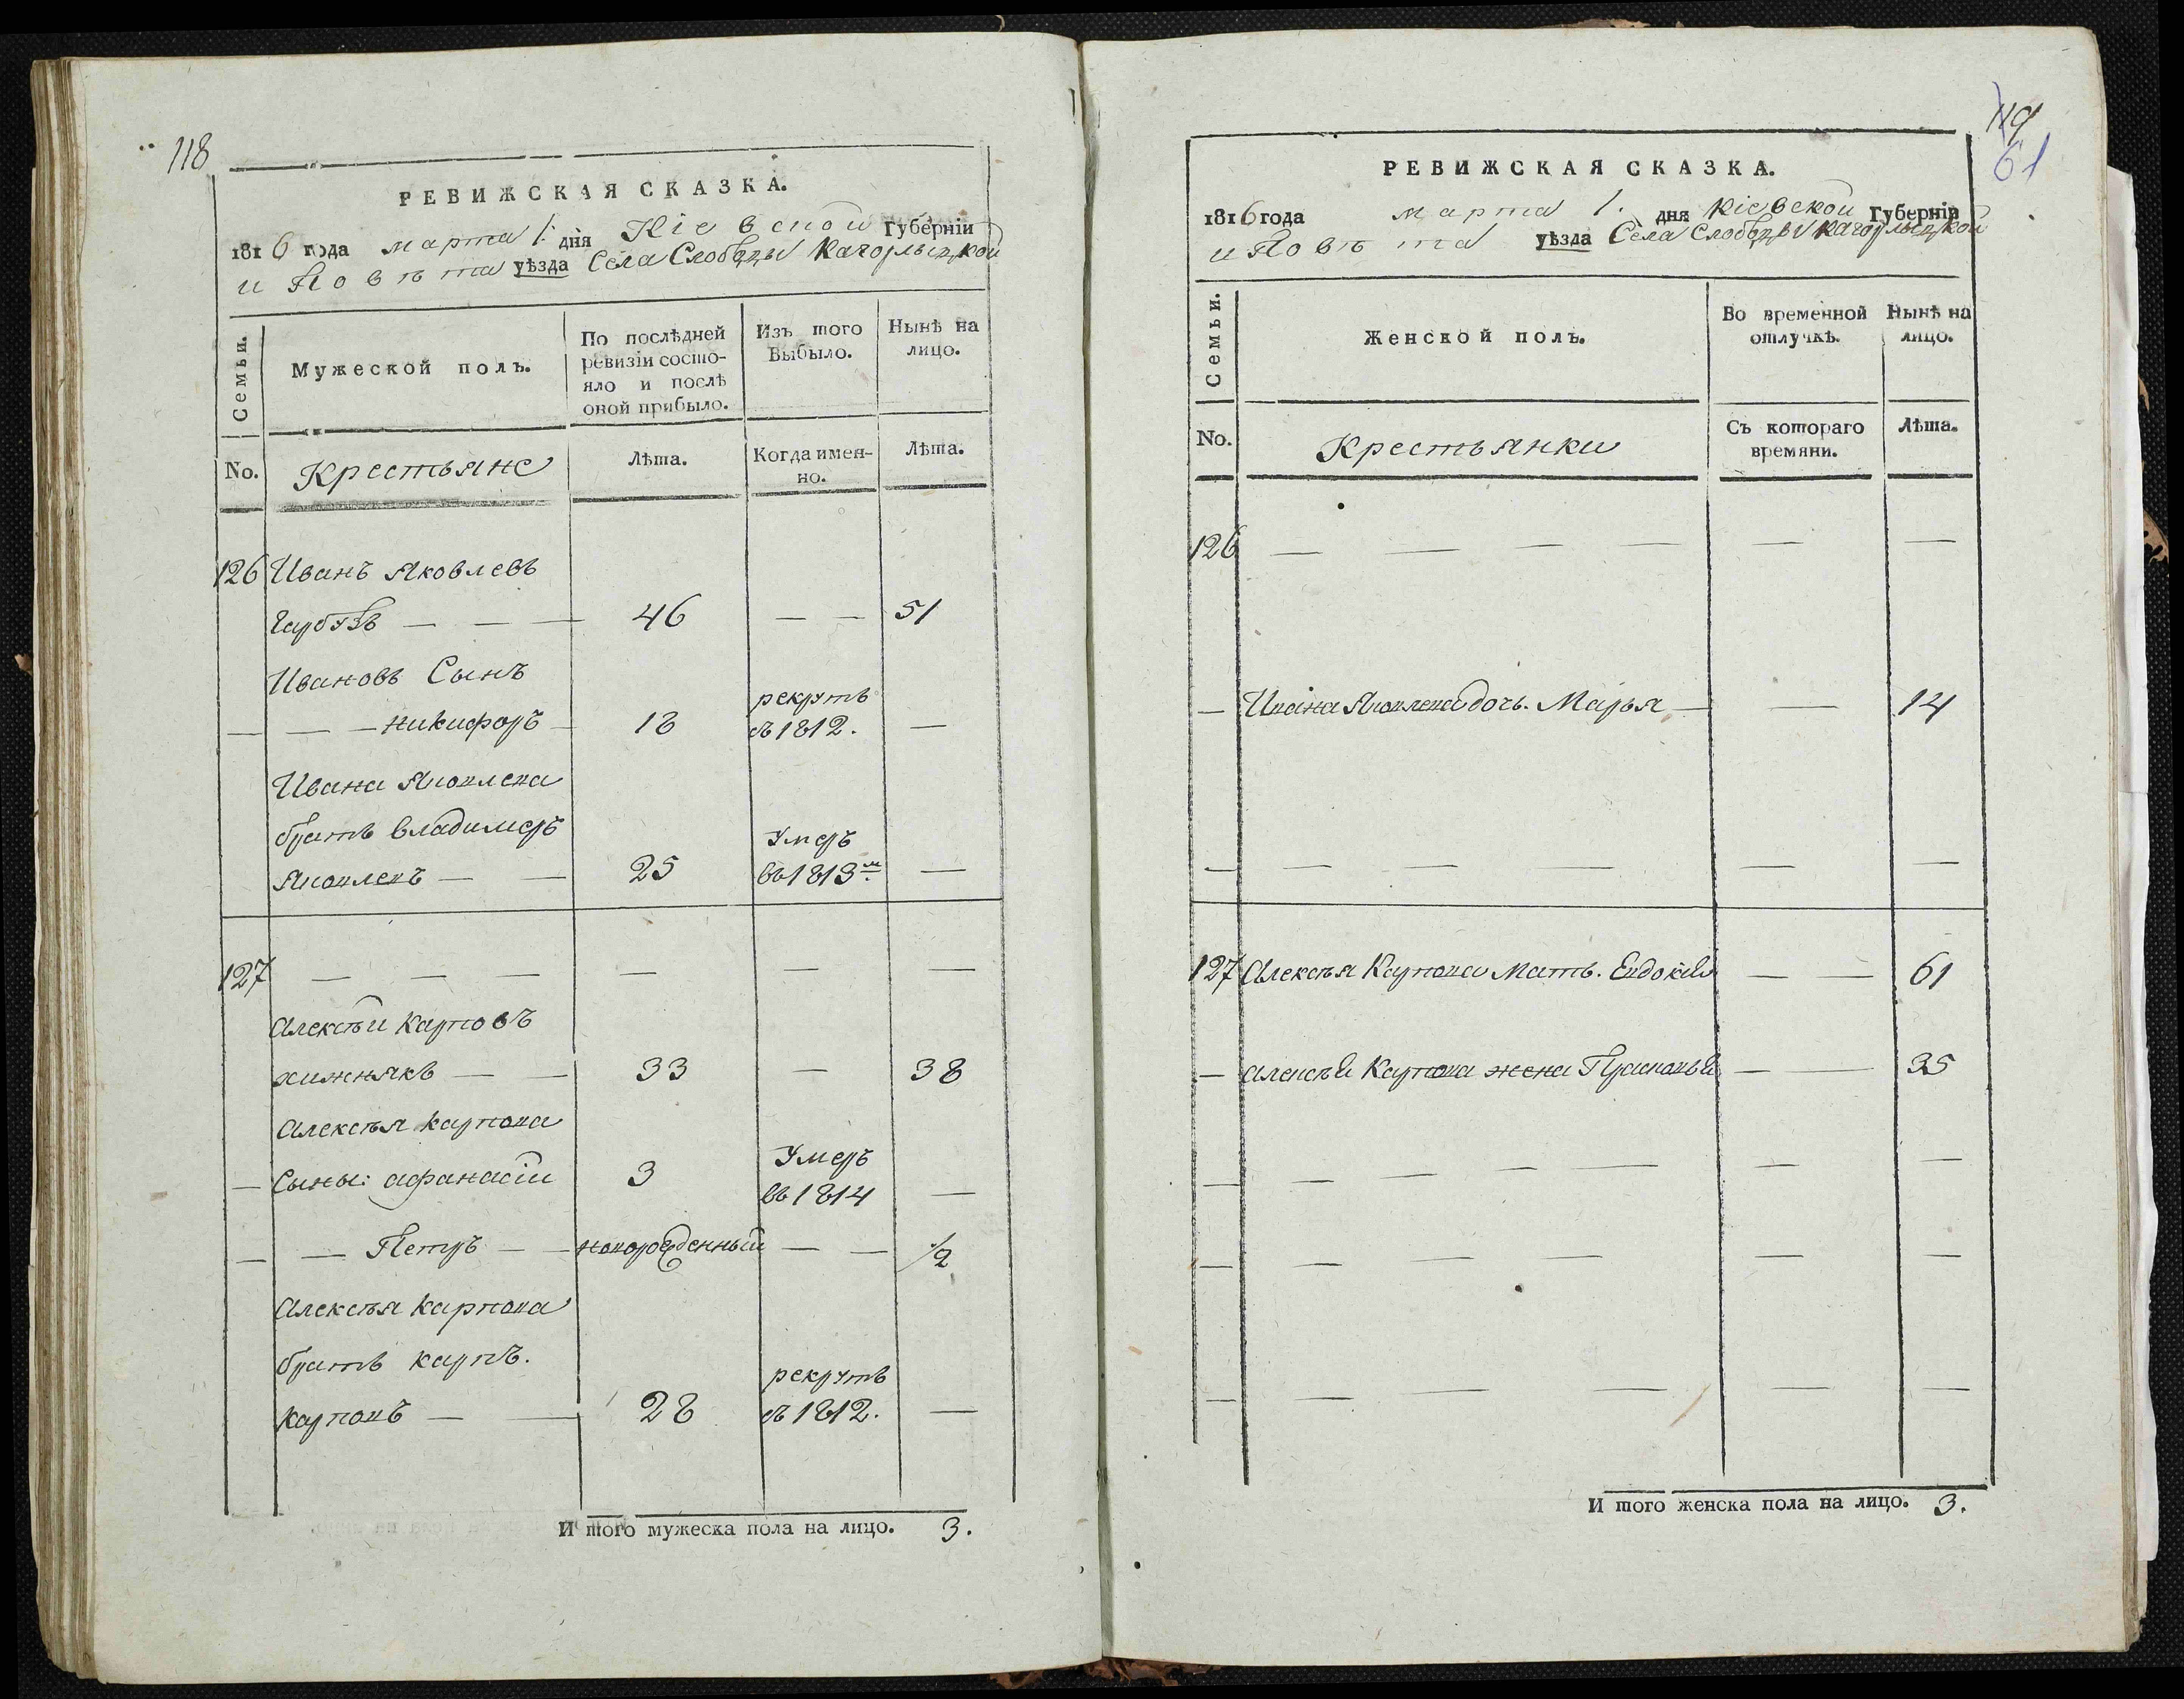 118
РЕВИЖСКАЯ СКАЗКА.
1816 года марта 1. дня Кіевской Губерніи
и Повѣта уѣзда Села Слободы Кагорлыцкой
Семьи.
Мужеской полъ.
По послѣдней ревизіи состо-
яло и послѣ
оной прибыло.
Изъ того
Выбыло.
Нынѣ на
лицо.
No.
Крестьяне
Лѣта.
Когда имен-
но.
Лѣта.
126 Иванъ Яковлевъ
Гарбузъ — — — 46 — — 51
Ивановъ Сынъ
— — — никифоръ — 18 рекрутъ
въ 1812. —
Ивана Яковлева
братъ владимеръ
Яковлевъ — — 25 Умеръ
въ 1813м. —
127 — — — — — —
Алексѣй Карповъ
хижнякъ — — 33 — 38
Алексѣя карпова
— Сыны: афанасій 3 Умеръ
въ 1814 —
— — Петръ — — новорожденный — — 1/2
Алексѣя карпова
братъ карпъ.
карповъ — — 28 рекрутъ
въ 1812. —
И того мужеска пола на лицо. 3.
119
61
РЕВИЖСКАЯ СКАЗКА.
1816 года марта 1. дня Кіевской Губерніи
и Повѣта уѣзда Села Слободы Кагорлыцкой
Семьи.
Женской полъ.
Во временной
отлучкѣ.
Нынѣ на
лицо.
No.
Крестьянки
Съ котораго
времяни.
Лѣта.
126 — — — — — —
— Ивана Яковлева дочь. Марья — — 14
— — — — — —
127 Алексѣя Карпова Мать. Евдокія — — 61
— алексѣя Карпова жена Прасковья — — 35
— — — — — — —
— — — — — —
— — — — — —
И того женска пола на лицо. 3.